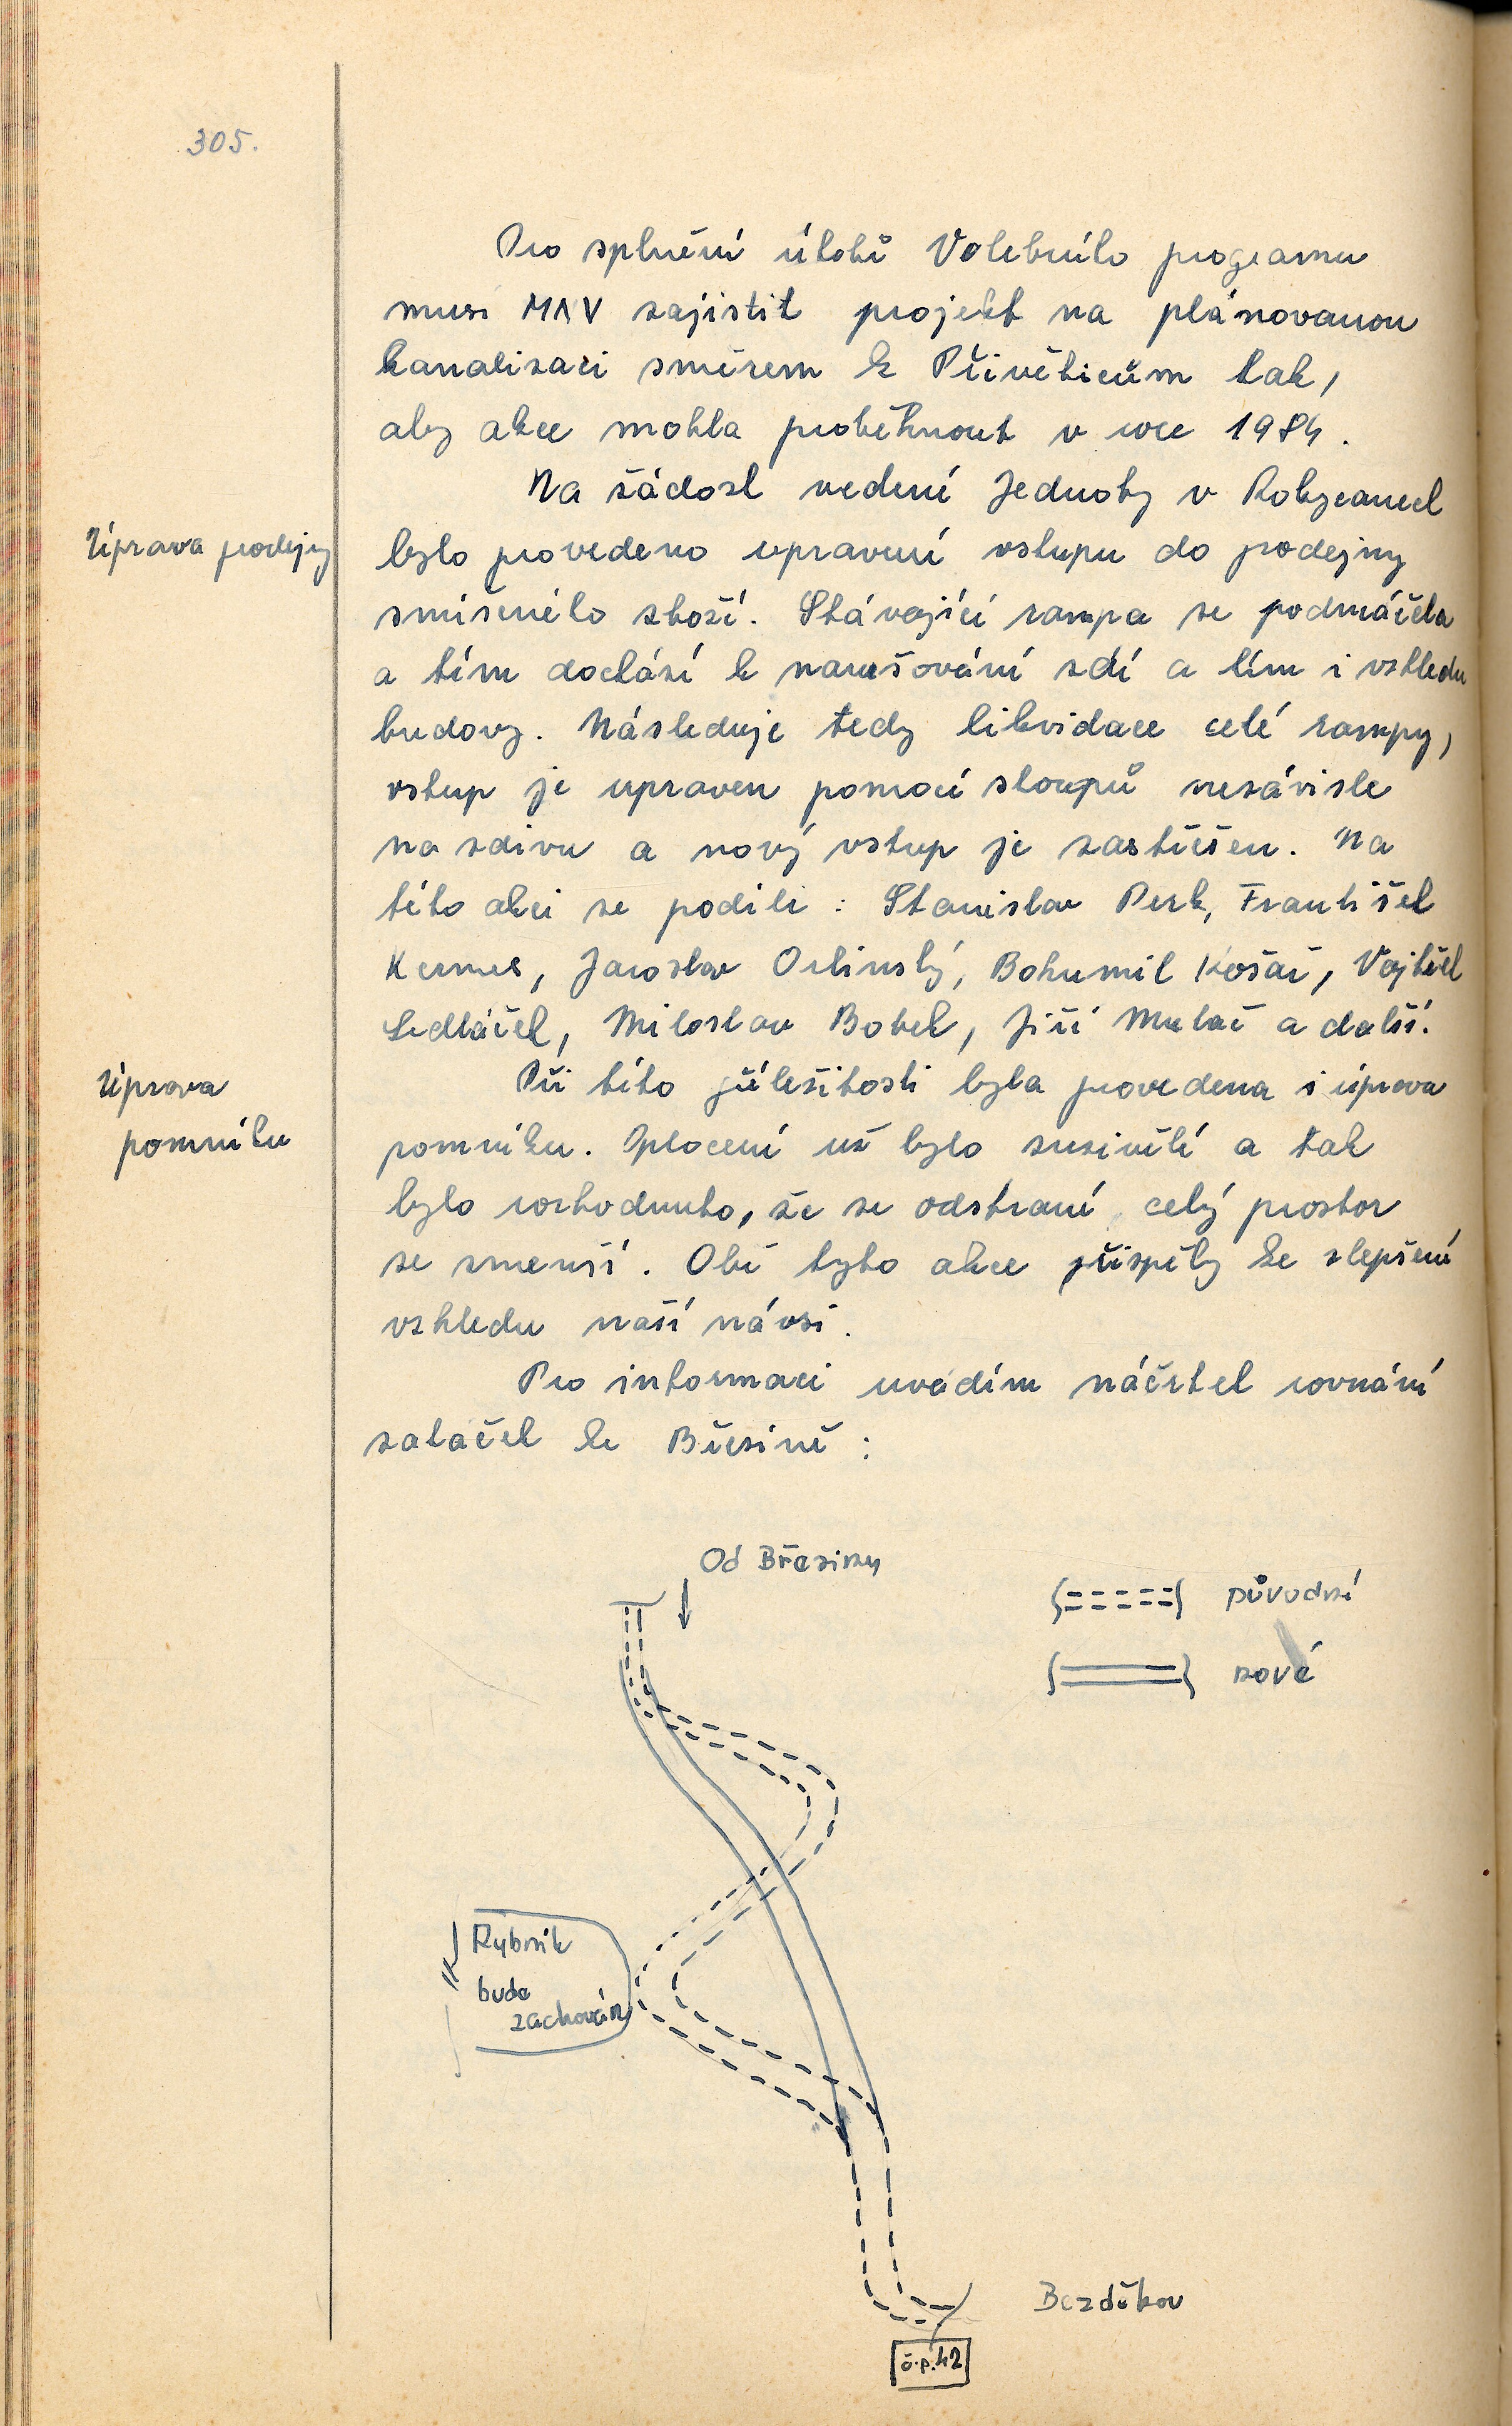 305.
Pro splnění úkolů Volebního programu
musí MNV zajistit projekt na plánovanou
kanalizaci směrem k Přívěticům tak,
aby akce mohla proběhnout v roce 1984.
Na žádost vedení Jednoty v Rokycanech
Úprava prodejny
bylo provedeno upravení vstupu do prodejny
smíšeného zboží. Stávající rampa se podmáčela
a tím dochází k narušování zdí a tím i vzhledu
budovy. Následuje tedy likvidace celé rampy,
vstup je upraven pomocí sloupů nezávisle
na zdivu a nový vstup je zastřešen. Na
této akci se podíleli : Stanislav Perk, František
Jaroslav Orlinský, Bohumil Košař, Vojtěch
Sedláček, Miloslav Bobek, Jiří Mulač a další.
Úprava
Při této příležitosti byla provedena i úprava
pomníku
pomníku. Oplocení už bylo zrezivělé a tak
bylo rozhodnuto, že se odstraní, celý prostor
se zmenší. Obě tyto akce přispěly ke zlepšení
vzhledu naší návsi.
Pro informaci uvádím náčrtek rovnání
zatáček k Březině :
Od Březiny
původní
nové
Rybník
bude
zachován
Bezděkov
č.p.42